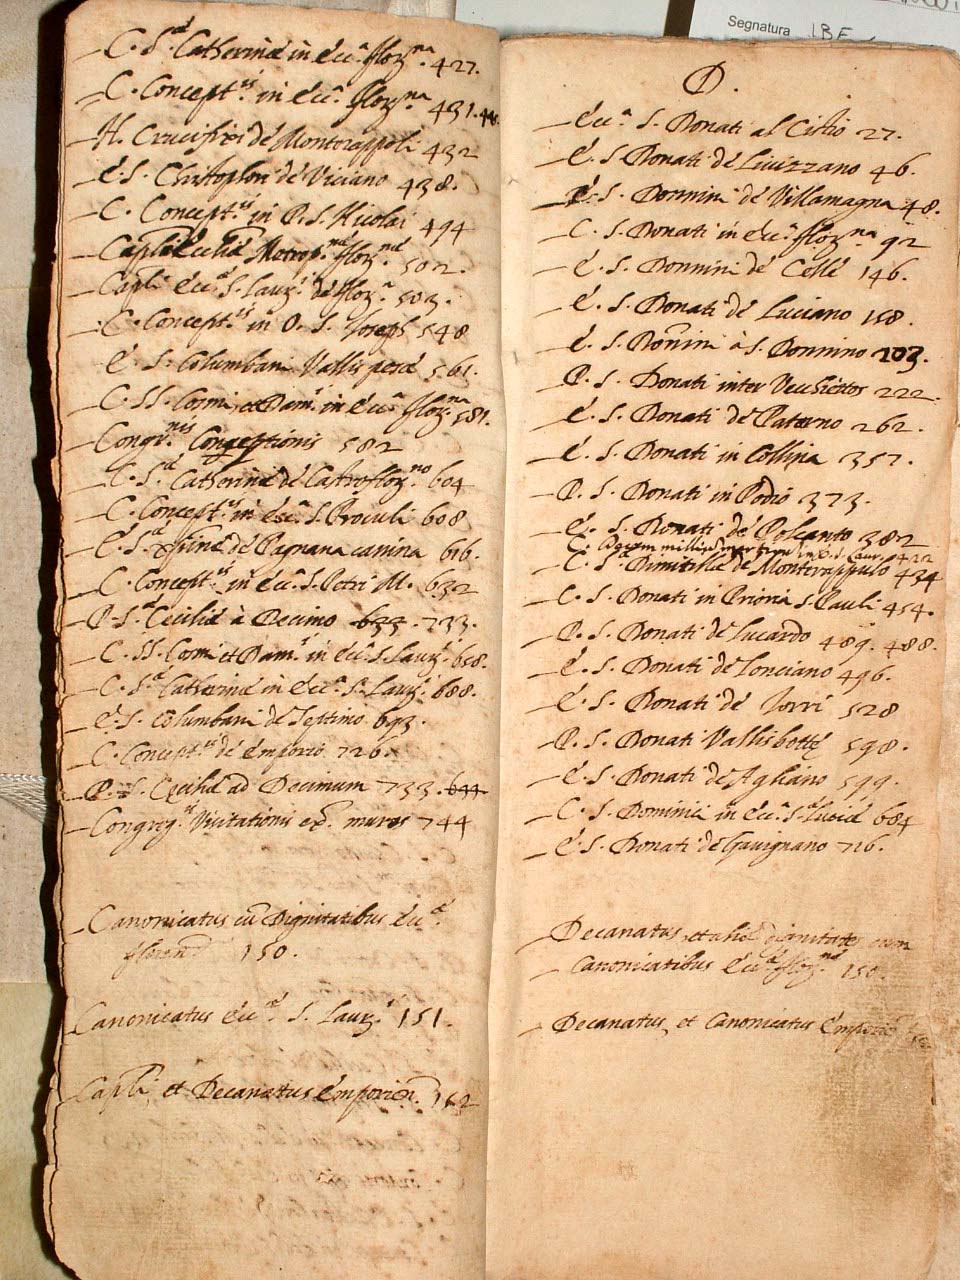 C. S.ae Catherinae in Ecc.a flor.na 427.
C. Concept.is in Ecc.a flor.na 431.
H. Crucifixi de Monterappoli 432
E. S. Christophori de Viciano 438.
C. Concept.is in P. S. Nicolai 494
Capli Eccliae Metrop.nae flor.nae 502.
Capli Ecc.ae S. Laur.i de flor.a 503.
C. Concept.is in O. S. Joseph 548
E. S. Columbani Vallis pesae 561.
C. SS. Cosmi, et Dam.i in Ecc.a flor.na 581.
Congr.nis Conceptionis 582
C. S.ae Catherinae de Castroflor.no 604
C. Concept.is in Ecc.a S. Proculi 608
E. S.ae de Pagnana canina 616.
C. Concept.is in Ecc.a S. Petri M. 632
P. S.ae Ceciliae à Decimo 633. 733.
C. SS. Cosmi et Dam.i in Ecc.a S. Laur.i 658.
C. S.ae Catherinae in Ecc.a S.i Laur.i 688.
E. S. Columbani de Septimo 693.
C. Concept.is de Emporio 726.
P. S. Ceciliae ad Decimum 733. 644
Congreg.is Visitationis ex.a muros 744
Canonicatus cū Dignitatibus Ecc.ae
floren. 150.
Canonicatus Ecc.ae S. Laur.i 151.
Capli, et Decanattus Emporien. 152
Segnatura
D.
Ecc.a S. Donati al Cistio 27.
E. S. Donati de Livizzano 46.
E. S. Donnini de Villamagna 48.
C. S. Donati in Ecc.a flor.na 92
E. S. Donnini de Celle 146.
E. S. Donati de Luciano 158.
E. S. Donini à S. Donnino 203.
P. S. Donati inter Vecchiettos 222.
E. S. Donati de Paterno 262.
E. S. Donati in Collina 357.
P. S. Donati in Podio 373.
E. S. Donati de Polcanto 382
C. Decem millia martirum in E. S. Laur. 422
C. S.ae Dimitillae de Monterappulo 434
C. S. Donati in Prioria S. Pauli 454.
P. S. Donati de Lucardo 489. 488.
E. S. Donati de Lonciano 496.
E. S. Donati de Torri 528
P. S. Donati Vallis bottę 598.
E. S. Donati de Aghiano 599.
C. S. Dominici in Ecc.a S.ae Luciae 684
E. S. Donati de Gavignano 716.
Decanatus, et aliae dignitates cum
Canonicatibus Ecc.ae flor.nae 150.
Decanatus, et Canonicatus Emporien